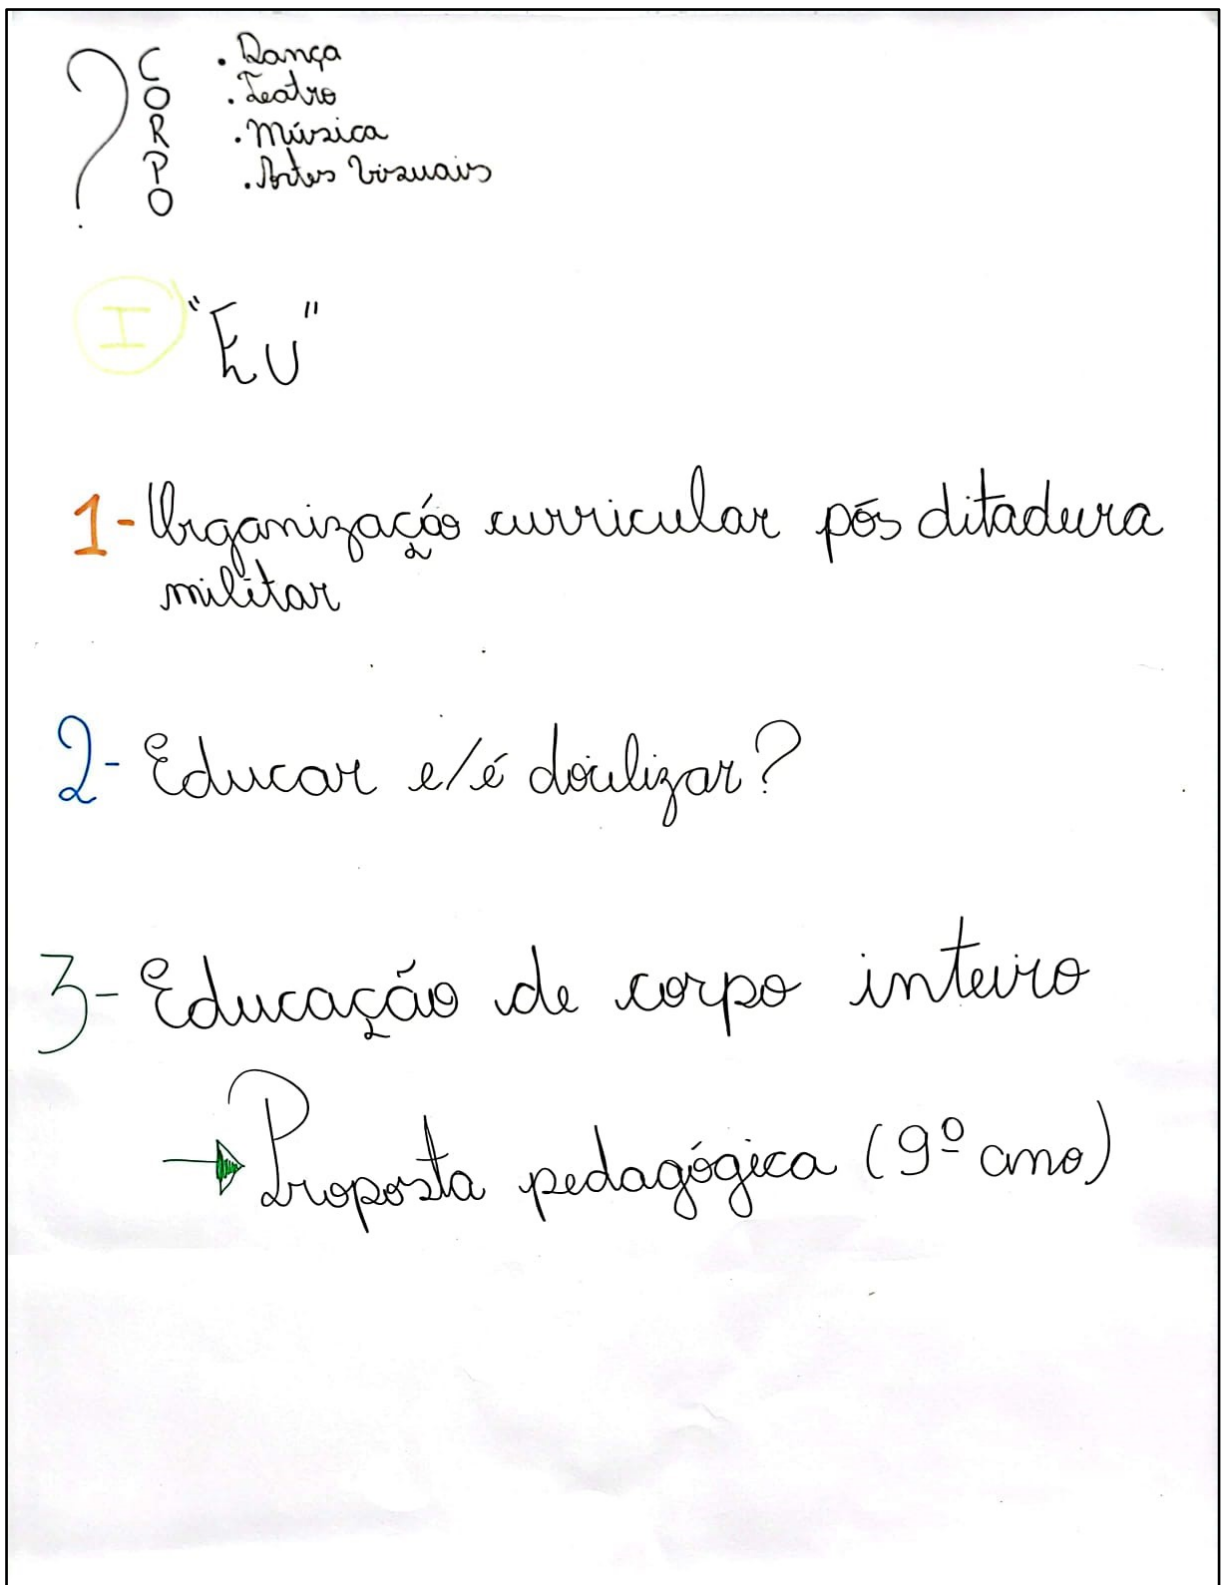 ?
CORPO
. Dança
. Teatro
. Música
. Artes Visuais
I "Eu"
1- Organização curricular pós ditadura
militar
2- Educar e/é docilizar?
3- Educação de corpo inteiro
Proposta pedagógica (9º ano)